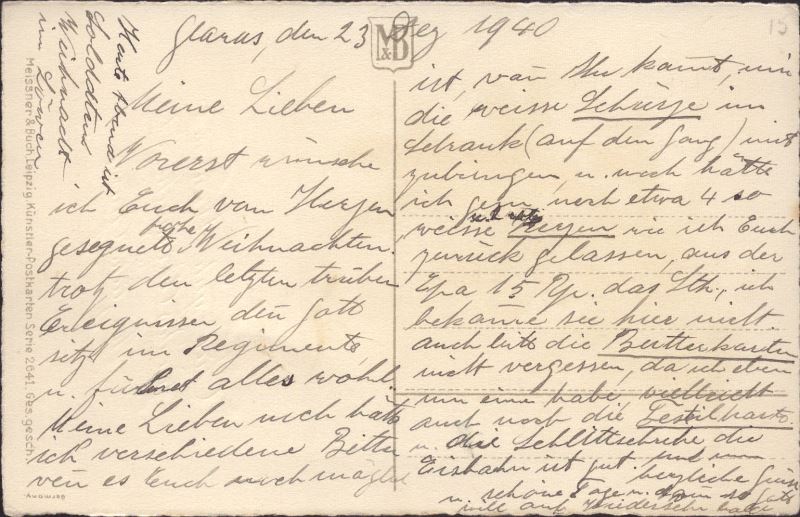 Glarus, den 23 Dez 1940
M&B
15
Heute Abend ist
Solddtens
Weihnacht
im Löwen
Meine Lieben
Vorerst wünsche
ich Euch vom Herzen
gesegnete frohe Weihnachten.
trotz den letzten trüben
Ereignissen, den Gott
sitz im Regimente,
u. führet alles wohl.
Meine Lieben noch hätte
ich verschiedene Bitten
wen es Euch noch möglich
ist, wan Ihr kamt, mir
die weisse Schürze im
Schrank (auf den Gang) mit
zubringen, u. noch hätte
ich gern noch etwa 4 so
weisse Kerzen wie ich Euch
zurück gelassen, aus der
Epa 15 Rp. das Stk., ich
bekame sie hier nicht.
auch bitte die Butterkarten
nicht vergessen, da ich eben
nur eine habe, vielleicht
auch noch die Textilkarte.
u. die Schlittschuhe die
Eisbahn ist gut. und nun herzliche Grüsse
schöne Tage u. dann so Gott
will auf Wiedersehn
Meissner & Buch Leipzig Künstler-Postkarten Serie 2641. Ges. gesch.
Germany